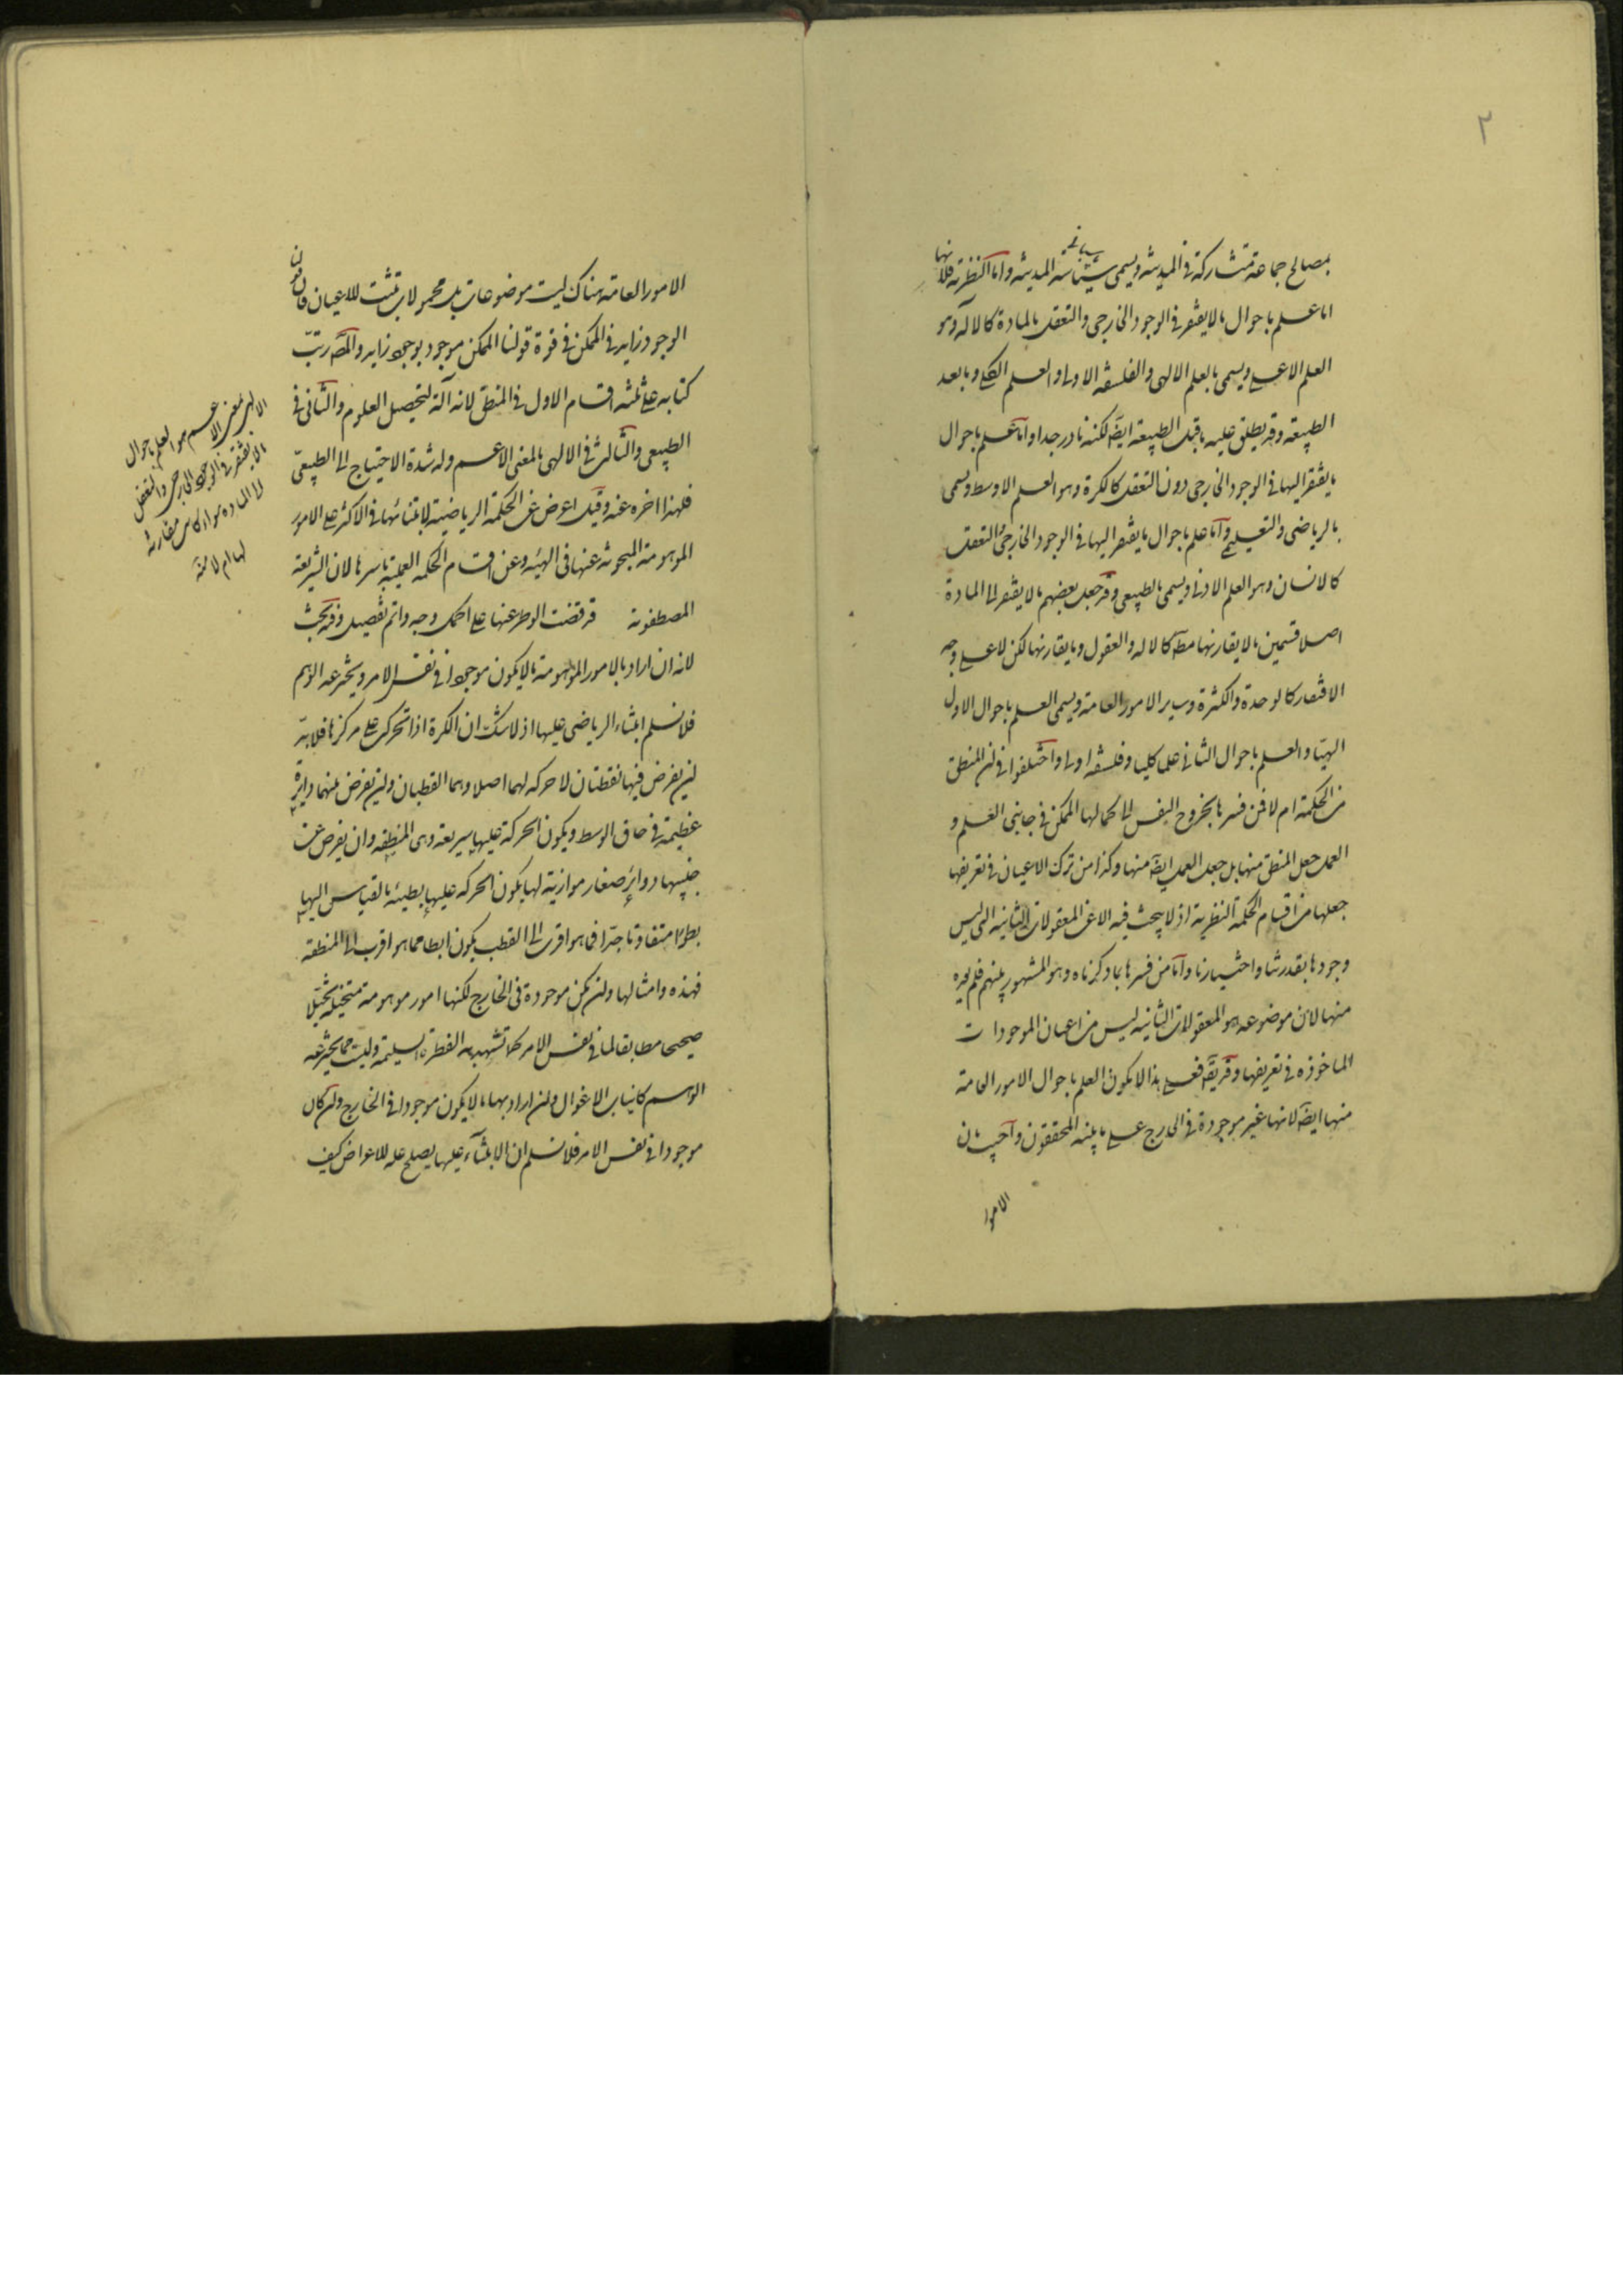 ٢
بمصالح جماعة متشاركة فى المدينة ويسمى سياسة المدينة واما النظرية فلانها
اما علم باحوال ما لا يفتقر فى الوجود الخارجى والتعقل بالمادة كالاله وهو
العلم الاعلى ويسمى بالعلم الالهى والفلسفه الاولى والعلم الكلى وما بعد
الطبيعة وقد يطلق عليه ما قبل الطبيعة ايضا لكنه نادر جدا واما علم باحوال
ما يفتقر اليها فى الوجود الخارجى دون التعقل كالكرة وهو العلم الاوسط ويسمى
بالرياضى والتعليمى واما علم باحوال ما يفتقر اليها فى الوجود الخارجى والتعقل
كالانسان وهو العلم الادنى ويسمى بالطبيعى وقد جعل بعضهم ما لا يفتقر الى المادة
اصلا قسمين ما لا يقارنها مطلقا كالاله والعقول وما يقارنها لكن لا على وجه
الافتقار كالوحدة والكثرة وساير الامور العامة ويسمى العلم باحوال الاول
الهيا والعلم باحوال الثانى علما كليا وفلسفه اولى واختلفوا فى ان المنطق
من الحكمة ام لا فمن فسرها بخروج النفس الى كمالها الممكن فى جانبى العلم و
العمل جعل المنطق منها بل جعل العمل ايضا منها وكذا من ترك الاعيان فى تعريفها
جعلها من اقسام الحكمة النظرية اذ لا يبحث فيه الا عن المعقولات الثانيه التى ليس
وجودها بقدرتنا واختيارنا واما من فسرها بما ذكرناه وهو المشهور بينهم فلم يعده
منها لان موضوعه هو المعقولات الثانيه ليس من اعيان الموجودات
الماخوذه فى تعريفها وقد يقال فعلى هذا لا يكون العلم باحوال الامور العامة
منها ايضا لانها غير موجودة فى الخارج على ما بينه المحققون واجيب بان
الامور
الامور العامة هناك ليست موضوعات بل محمولات تثبت للاعيان فان قولنا
الوجود زايد فى الممكن فى قوة قولنا الممكن موجود بوجود زايد والمص رتب
كتابه على ثلثه اقسام الاول فى المنطق لانه آلة لتحصيل العلوم والثانى فى
الطبيعى والثالث فى الالهى بالمعنى الاعم وله شدة الاحتياج الى الطبيعى
فلهذا اخره عنه وقيل اعرض عن الحكمة الرياضية لابتنائها فى الاكثر على الامور
الموهومة المبحوثه عنها فى الهيئه وعن اقسام الحكمه العملية باسرها لان الشريعة
المصطفوية قد قضت الوطر عنها على اكمل وجه واتم تفصيل وفيه بحث
لانه ان اراد بالامور الموهومة ما لا يكون موجودا فى نفس الامر ويخترعه الوهم
فلا نسلم ابتناء الرياضى عليها اذ لا شك ان الكرة اذا تحركت على مركزها فلا بد
ان يفرض فيها نقطتان لا حركه لهما اصلا وهما القطبان وان يفرض بينهما دايرة
عظيمة فى حاق الوسط ويكون الحركة عليها سريعة وهى المنطقه وان يفرض عن
جنبيها دوائر صغار موازية لها يكون الحركه عليها بطيئه بالقياس اليها
بطوءا متفاوتا جدا فما هو اقرب الى القطب يكون ابطأ مما هو اقرب الى المنطقه
فهذه وامثالها وان لم يكن موجودة فى الخارج لكنها امور موهومة متخيلة تخيلا
صحيحا مطابقا لما فى نفس الامر كما تشهد به الفطرة السليمة وليست مما يخترعه
الوهم كانياب الاغوال وان اراد بها ما لا يكون موجودا فى الخارج وان كان
موجودا فى نفس الامر فلا نسلم ان الابتناء عليها يصلح عله للاعراض كيف
الالهى بالمعنى الاعم هو العلم باحوال
ما لا يفتقر فى الوجود الخارجى والتعقل
الى الماده سواء كان مقارنة
لها ام لا